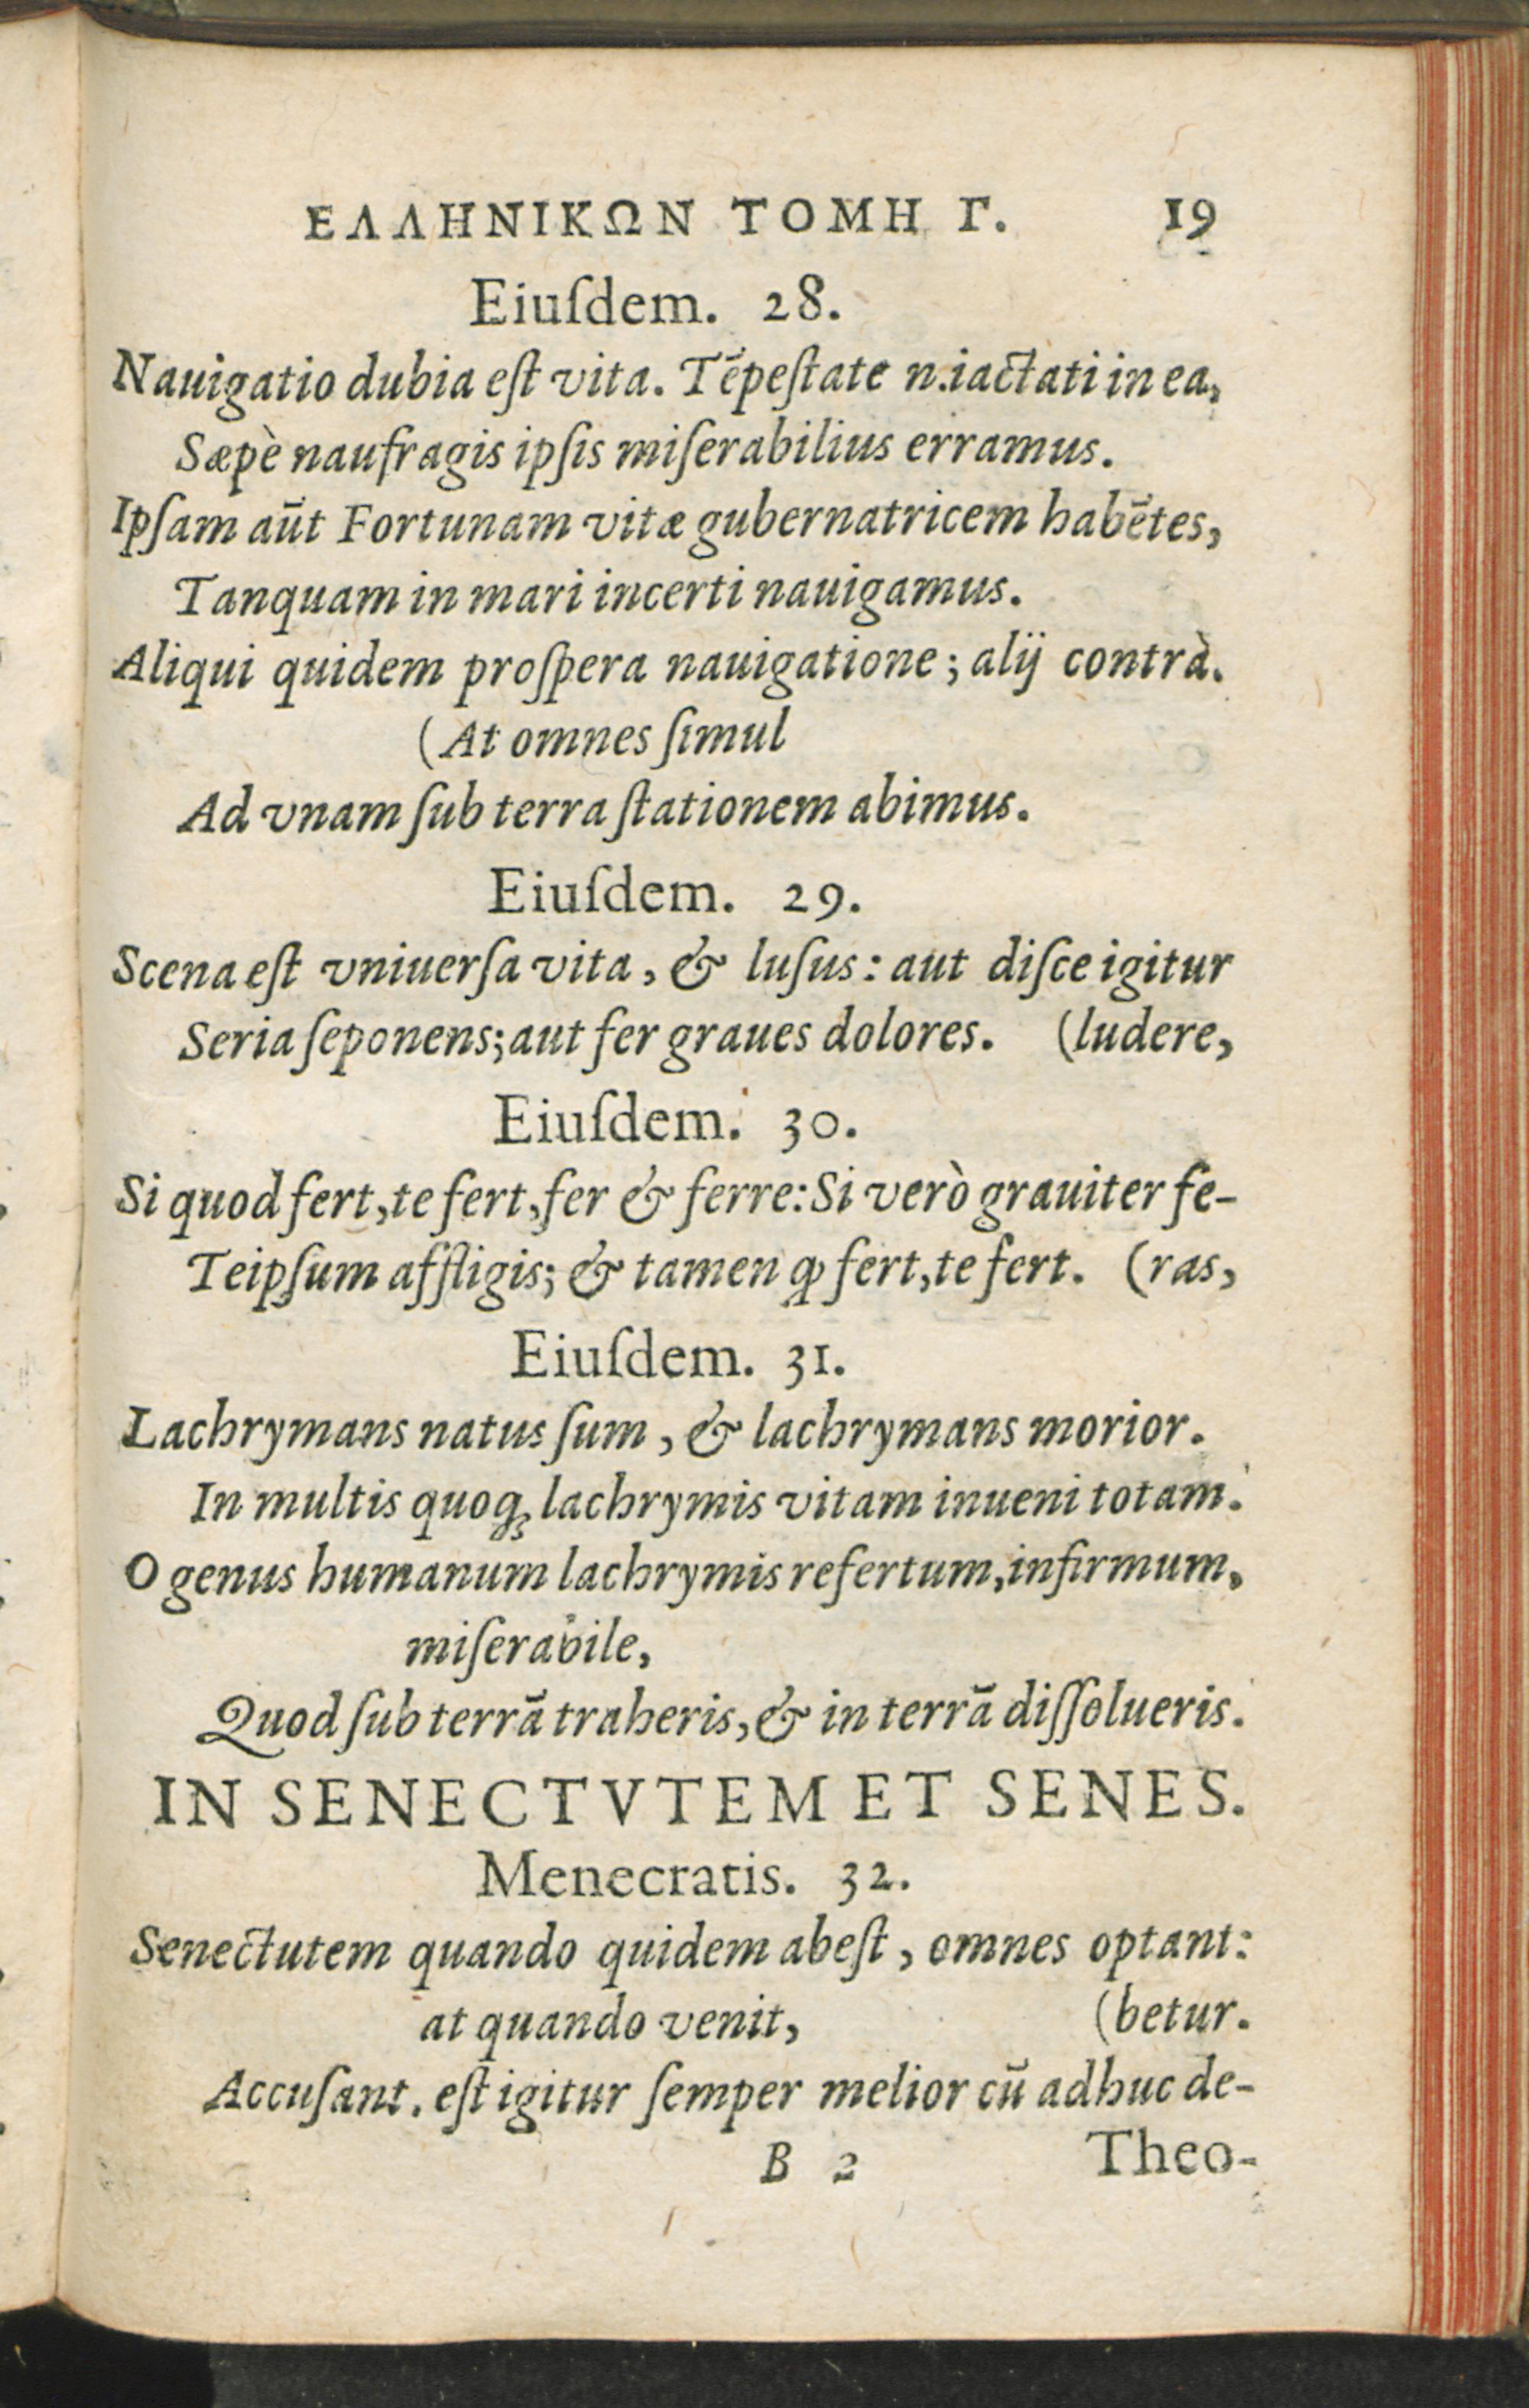 ΕΛΛΗΝΙΚΩΝ ΤΟΜΗ Γ. 19
Eiuſdem. 28.
Nauigatio dubia eſt vita. Tēpeſtate n. iactati in ea,
Sæpè naufragis ipſis miſerabilius erramus.
Ipſam aūt Fortunam vitæ gubernatricem habētes,
Tanquam in mari incerti nauigamus.
Aliqui quidem proſpera nauigatione; alij contrà.
(At omnes ſimul
Ad vnam ſub terra ſtationem abimus.
Eiuſdem. 29.
Scena eſt vniuerſa vita, & luſus: aut diſce igitur
Seria ſeponens; aut fer graues dolores. (ludere,
Eiuſdem. 30.
Si quod fert, te fert, fer & ferre: Si verò grauiter fe-
Teipſum affligis; & tamen ꝙ fert, te fert. (ras,
Eiuſdem. 31.
Lachrymans natus ſum, & lachrymans morior.
In multis quoq; lachrymis vitam inueni totam.
O genus humanum lachrymis refertum, infirmum,
miſerabile,
Quod ſub terrā traheris, & in terrā diſſolueris.
IN SENECTVTEM ET SENES.
Menecratis. 32.
Senectutem quando quidem abeſt, omnes optant:
at quando venit, (betur.
Accuſant. eſt igitur ſemper melior cū adhuc de-
B 2 Theo-